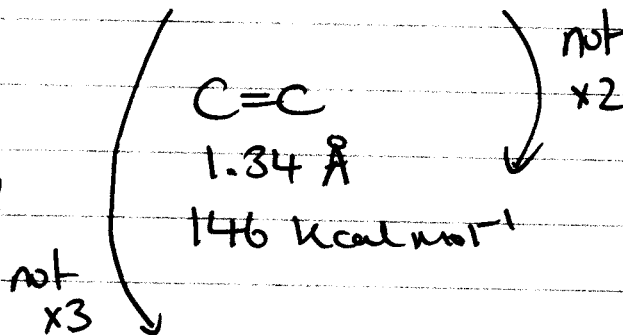 not
x2
C=C
1.34 Å
146 kcal mol⁻¹
not
x3